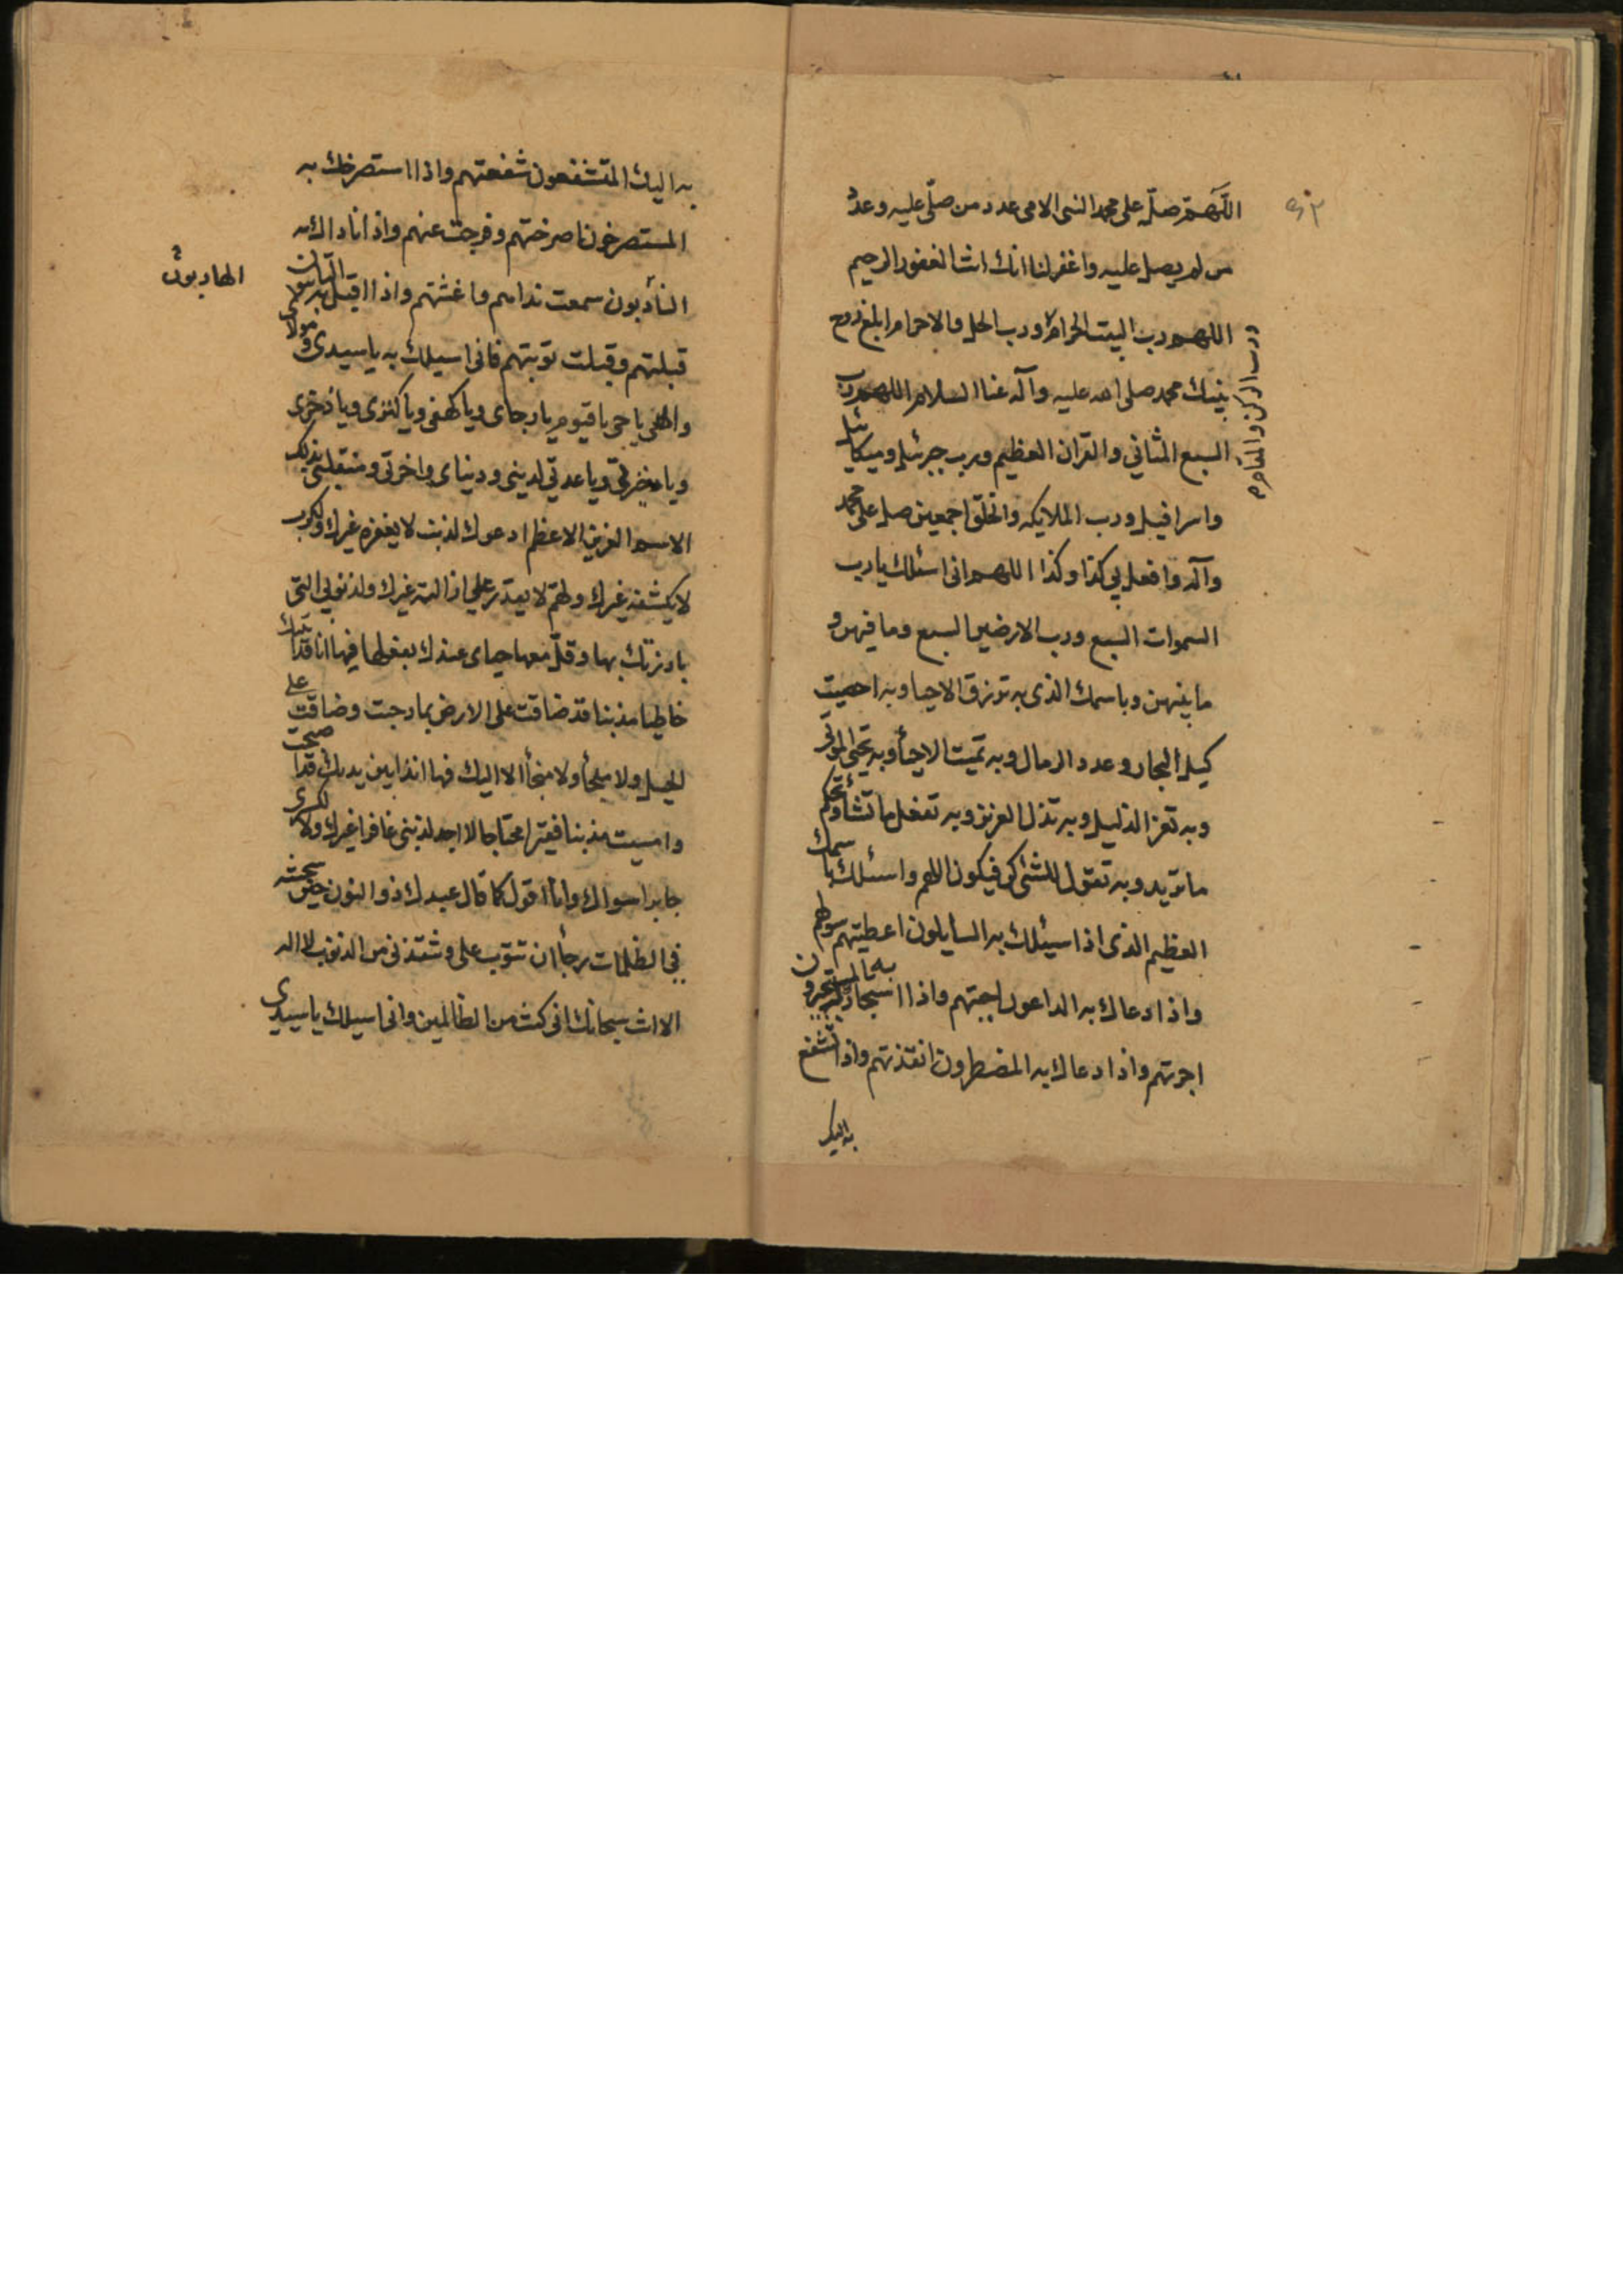 اللهم صل على محمد النبى الامى عدد من صلى عليه وعدد
من لم يصل عليه واغفر لنا انك انت الغفور الرحيم
اللهم رب البيت الحرام ورب الحل والاحرام ابلغ روح
ورب الركن والمقام
نبيك محمد صلى الله عليه وآله عنا السلام اللهم رب
السبع المثاني والقران العظيم ورب جبرئيل وميكائيل
واسرافيل ورب الملايكه والخلق اجمعين صل على محمد
وآله وافعل بي كذا وكذا اللهم انى اسئلك يا رب
السموات السبع ورب الارضين السبع وما فيهن و
ما بينهن وباسمك الذى به ترزق الاحيا وبه احصيت
كيل البحار وعدد الرمال وبه تميت الاحيأ وبه تحى الموتى
وبه تعز الذليل وبه تذل العزيز وبه تفعل ما تشأ وتحكم
ما تريد وبه تقول للشئ كن فيكون اللهم واسئلك باسمك
العظيم الذى اذا سيئلك به السايلون اعطيتهم سولهم
واذا دعاك به الداعون اجبتهم واذا استجارك به المستجيرون
اجرتهم واذا دعاك به المضطرون انقذتهم واذا تشفع
به اليك
به اليك المتشفعون شفعتهم واذا استصرخك به
المستصرخون اصرختهم وفرجت عنهم واذا ناداك به
الهاربون
النأدبون سمعت نداهم واغثتهم واذا اقبل به التائبون
قبلتهم وقبلت توبتهم فانى اسيلك به يا سيدى ومولاى
والهى يا حى يا قيوم يا رجاى ويا كهفى ويا كنزى ويا ذخرى
ويا ذخيرتى ويا عدتي لدينى ودنياى واخرتى ومنقلبى بذلك
الاسم العزيز الاعظم ادعوك لذنب لا يغفره غيرك ولكرب
لا يكشفه غيرك ولهم لا يقدر علي ازالته غيرك ولذنوبي التى
بارزتك بها وقل معها حياى عندك بفعلها فها انا قد اتيتك
خاطيا مذبنا قد ضاقت على الارض بما رحبت وضاقت على
الحيل ولا ملجأ ولا منجأ الا اليك فها انذا بين يديك قد اصبحت
وامسيت مذبنا فقيرا محتاجا لا اجد لذنبى غافرا غيرك ولا لكسرى
جابرا سواك وانا اقول كما قال عبدك ذو النون حين سجنته
في الظلمات رجأ ان تتوب على وتنقذنى من الذنوب لا اله
الا انت سبحانك انى كنت من الظالمين وانى اسيلك يا سيدى